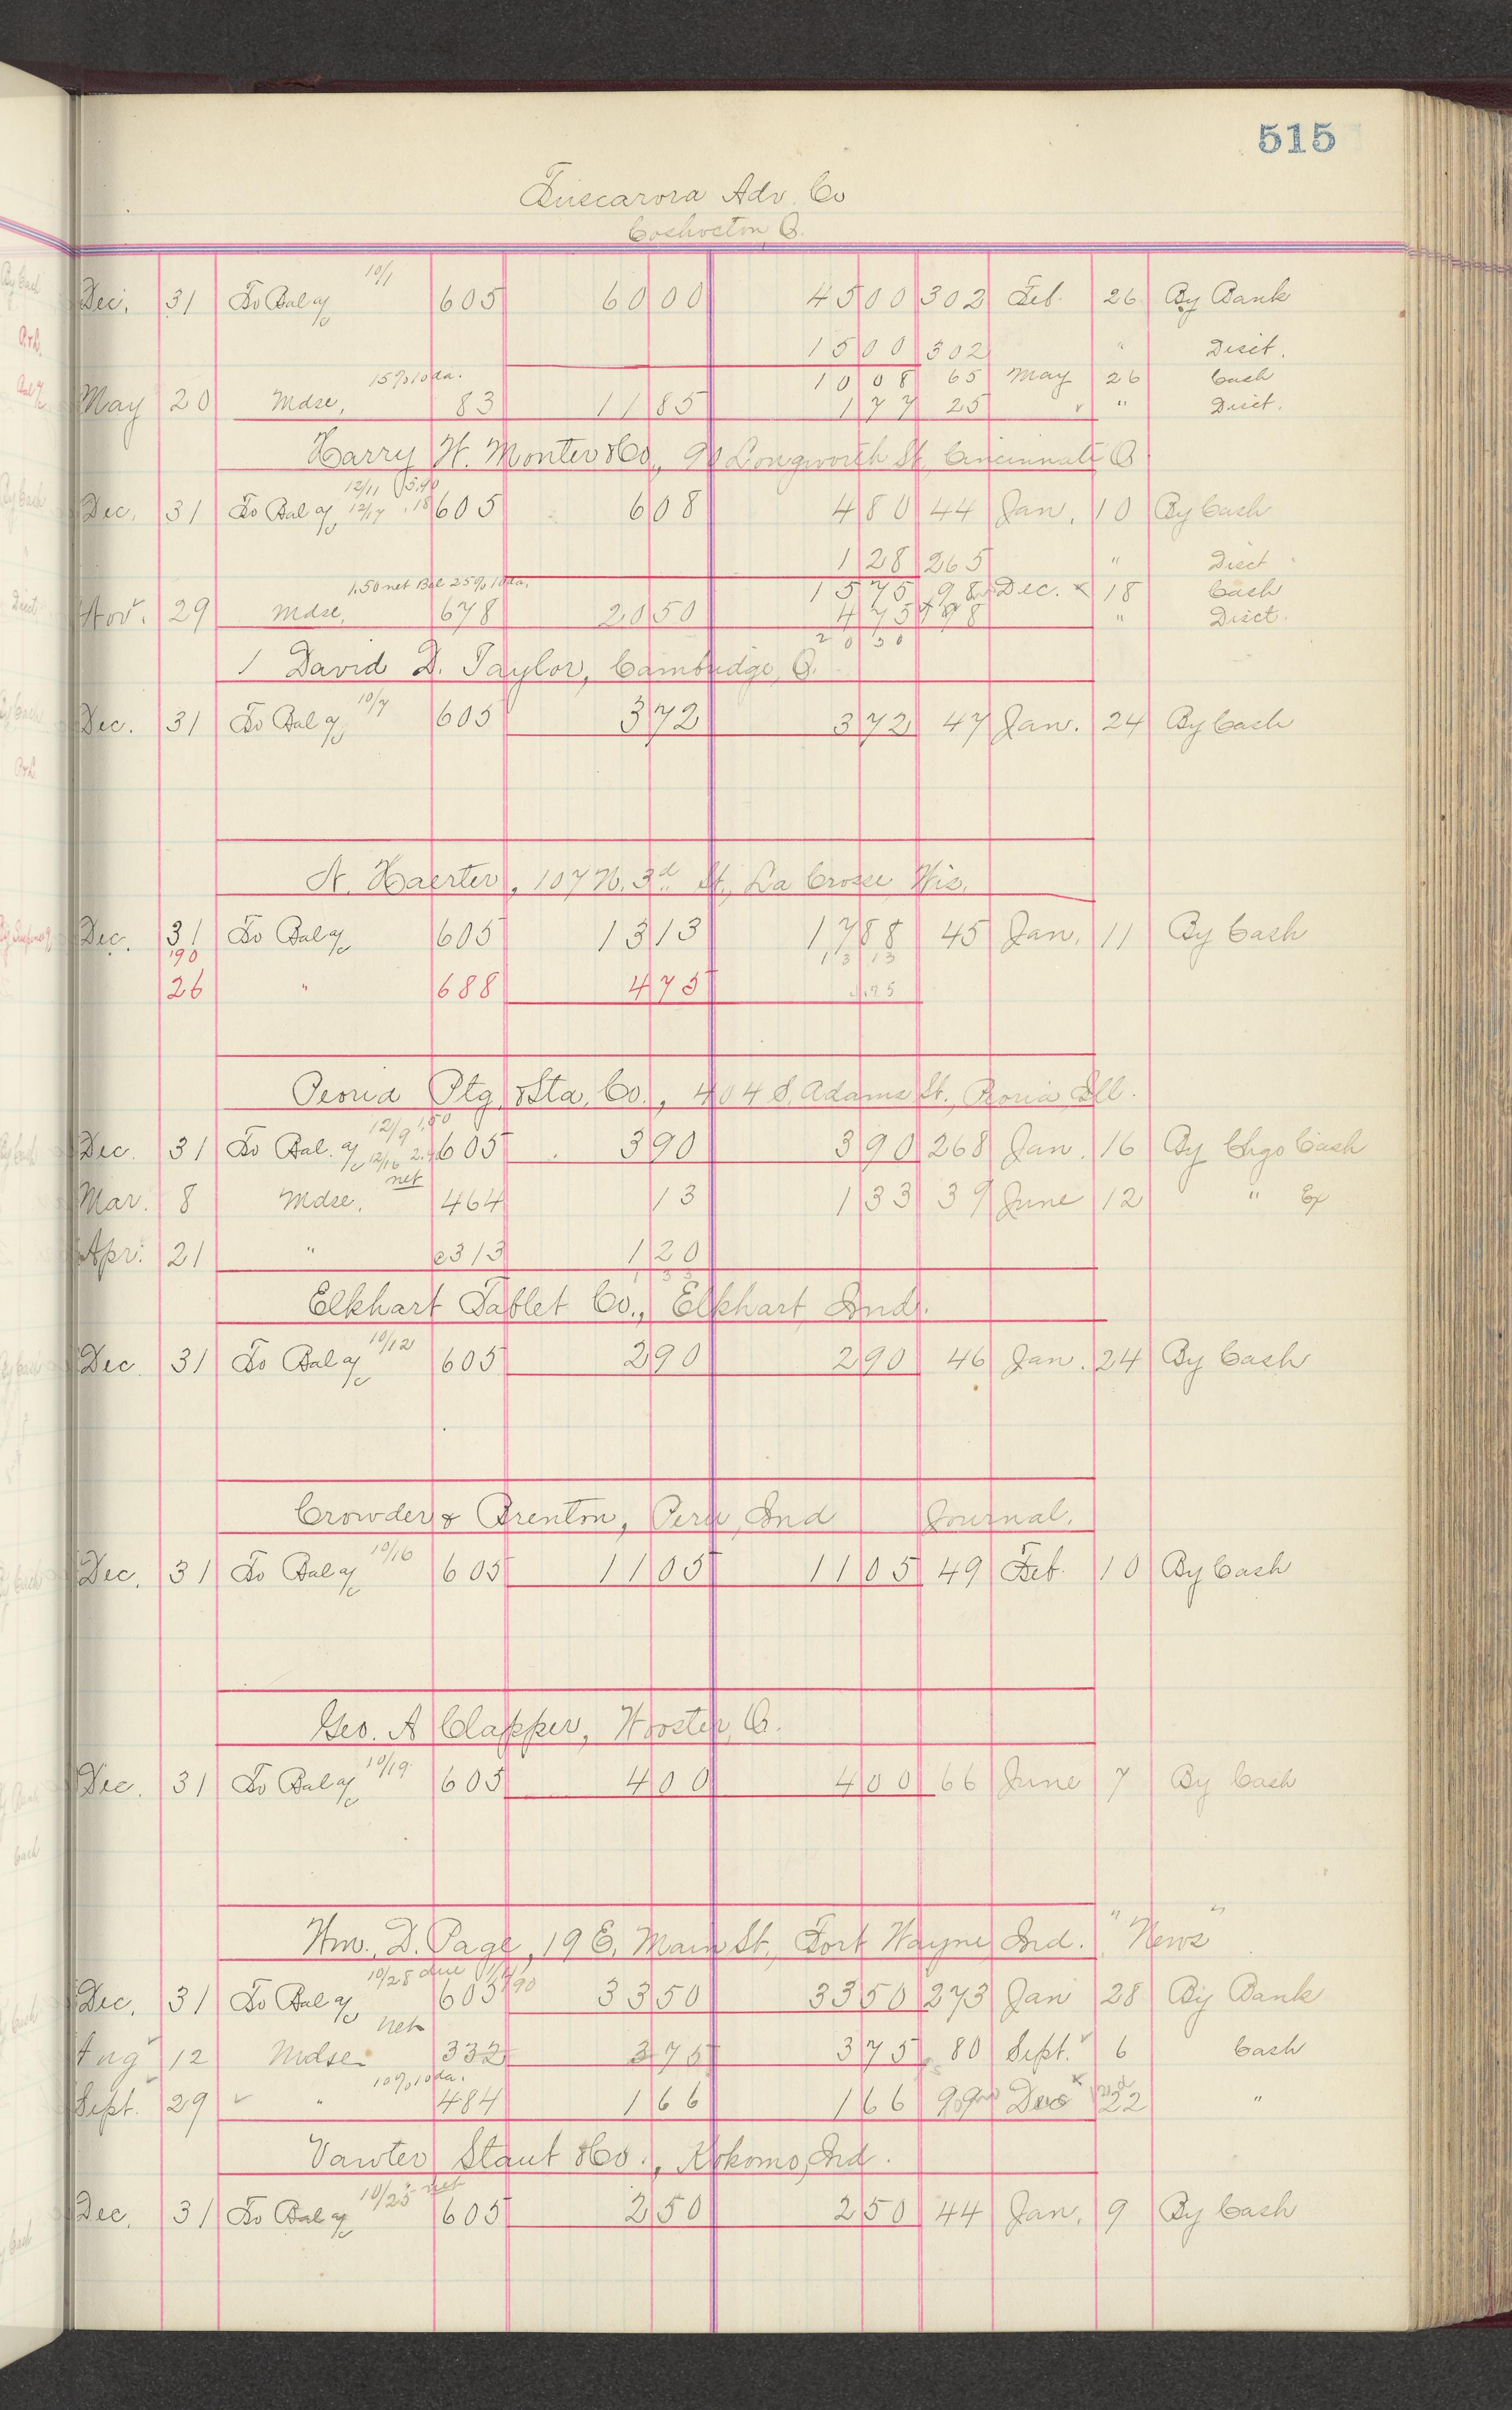 515
Tuscarora Adv. Co
Coshocton O.
10/1
Dec. 31 To Bal a/c 605 60 00 45 00 302 Feb. 26 By Bank
15 00 302 " Disct.
15% 10 da. 10 08 65 May 26 Cash
May 20 Mdse. 83 11 85 1 77 25 " Disct.
Harry W. Monter & Co., 90 Longworth St. Cincinnati O
12/11 5.90
Dec. 31 To Bal a/c 12/17 .18 605 6 08 4 80 44 Jan. 10 By Cash
1 28 265 " Disct
1.50 net Bal 25% 10 da. 15 75 98 Dec. 18 Cash
Nov. 29 Mdse. 678 20 50 4 75 98 " Disct.
20 50
1 David D. Taylor, Cambridge, O.
10/7
Dec. 31 To Bal a/c 605 3 72 3 72 47 Jan. 24 By Cash
A. Haerter, 107 N. 3d St., La Crosse Wis.
Dec. 31 To Bal a/c 605 13 13 17 88 45 Jan. 11 By Cash
'90 13 13
26 " 688 4 75 4.75
Peoria Ptg. & Sta. Co., 404 S. Adams St., Peoria Ill.
12/9 1.50
Dec. 31 To Bal. a/c 12/16 2.40 605 3 90 3 90 268 Jan. 16 By Chgo Cash
net
Mar. 8 Mdse. 464 13 1 33 39 June 12 " Ex
Apr. 21 " e313 1 20
1 33
Elkhart Tablet Co., Elkhart, Ind.
10/12
Dec 31 To Bal a/c 605 2 90 2 90 46 Jan. 24 By Cash
Crowder & Brenton, Peru, Ind Journal.
10/16
Dec. 31 To Bal a/c 605 11 05 11 05 49 Feb. 10 By Cash
Geo. A Clapper, Wooster, O.
10/19
Dec. 31 To Bal a/c 605 4 00 4 00 66 June 7 By Cash
Wm. D. Page, 19 E. Main St., Fort Wayne, Ind. "News"
10/28 due 1/1/90
Dec. 31 To Bal a/c 605 33 50 33 50 273 Jan 28 By Bank
net
Aug 12 Mdse. 332 3 75 3 75 80 Sept. 6 Cash
10% 10 da.
Sept. 29 " 484 1 66 1 66 99 Dec 22 "
Vawter Staut & Co., Kokomo, Ind.
10/25 net
Dec. 31 To Bal a/c 605 2 50 2 50 44 Jan. 9 By Cash